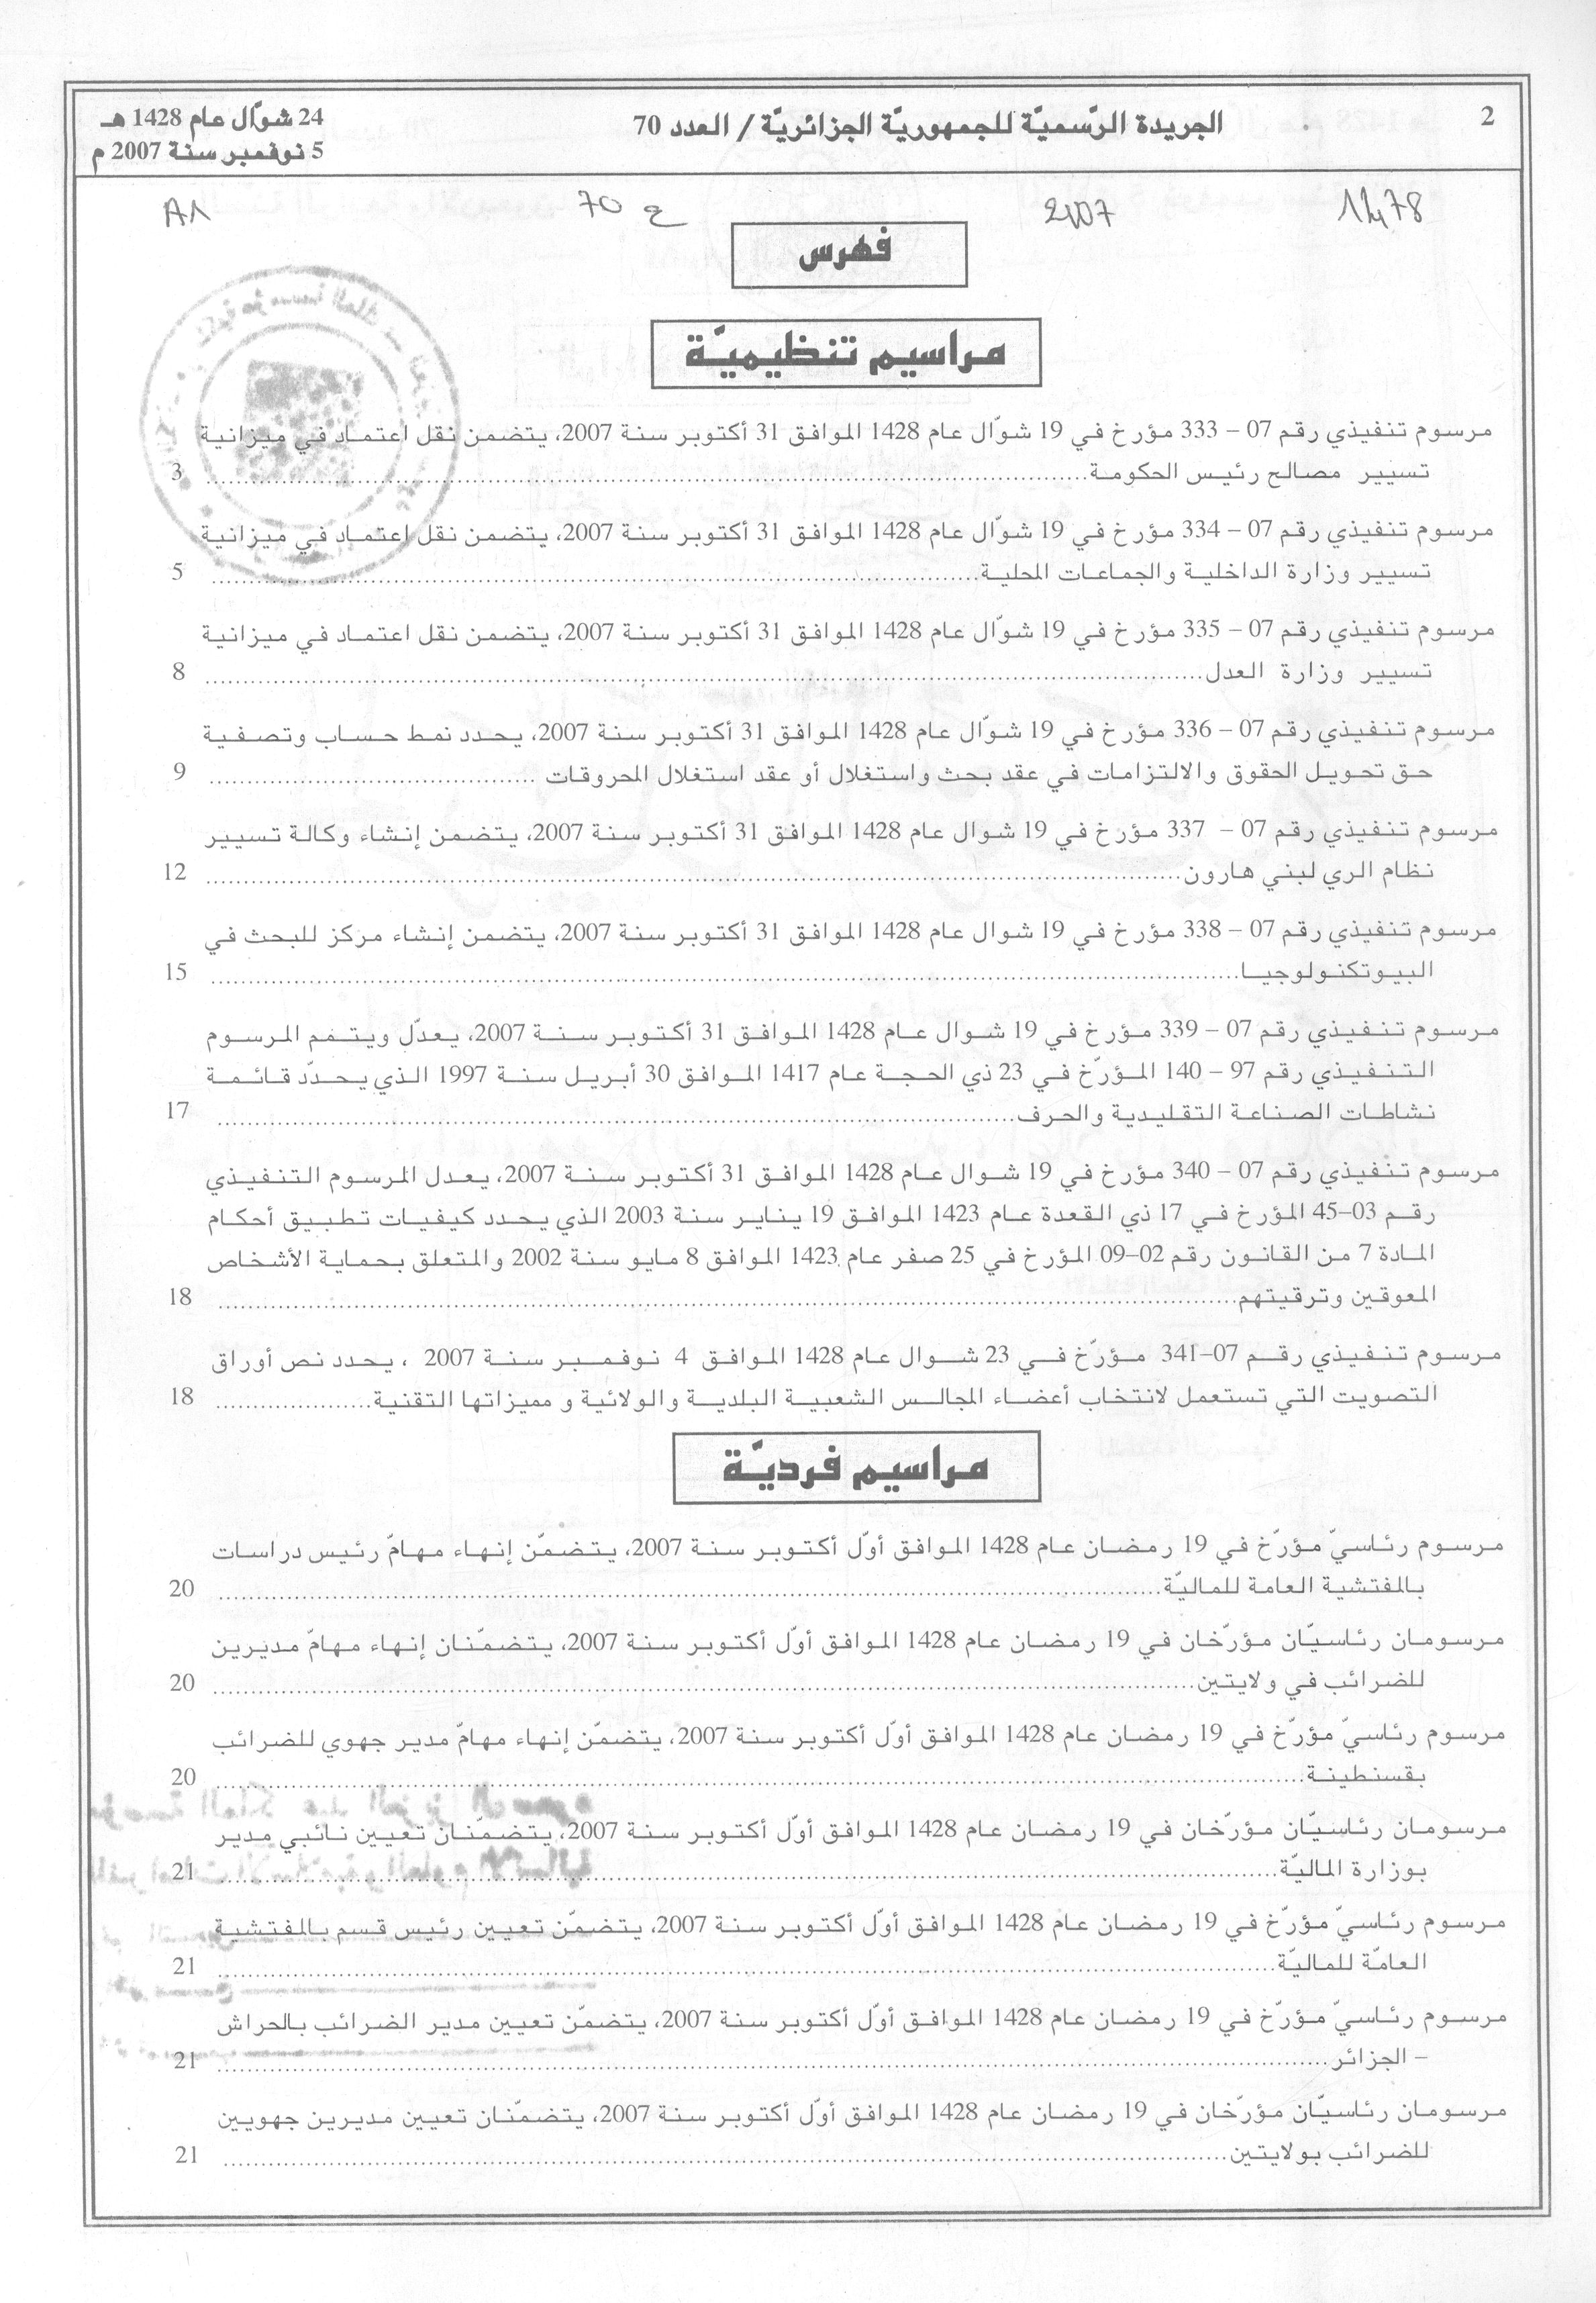 2
الجريدة الرّسميّة للجمهوريّة الجزائريّة / العدد 70
24 شوّال عام 1428 هـ
5 نوفمبر سنة 2007 م
1478
2007
ع 70
A1
فهرس
مراسيم تنظيميّة
مرسوم تنفيذي رقم 07 – 333 مؤرخ في 19 شوّال عام 1428 الموافق 31 أكتوبر سنة 2007، يتضمن نقل اعتماد في ميزانية
تسيير مصالح رئيس الحكومة 3
مرسوم تنفيذي رقم 07 – 334 مؤرخ في 19 شوّال عام 1428 الموافق 31 أكتوبر سنة 2007، يتضمن نقل اعتماد في ميزانية
تسيير وزارة الداخلية والجماعات المحلية 5
مرسوم تنفيذي رقم 07 – 335 مؤرخ في 19 شوّال عام 1428 الموافق 31 أكتوبر سنة 2007، يتضمن نقل اعتماد في ميزانية
تسيير وزارة العدل 8
مرسوم تنفيذي رقم 07 – 336 مؤرخ في 19 شوّال عام 1428 الموافق 31 أكتوبر سنة 2007، يحدد نمط حساب وتصفية
حق تحويل الحقوق والالتزامات في عقد بحث واستغلال أو عقد استغلال المحروقات 9
مرسوم تنفيذي رقم 07 – 337 مؤرخ في 19 شوال عام 1428 الموافق 31 أكتوبر سنة 2007، يتضمن إنشاء وكالة تسيير
نظام الري لبني هارون 12
مرسوم تنفيذي رقم 07 – 338 مؤرخ في 19 شوال عام 1428 الموافق 31 أكتوبر سنة 2007، يتضمن إنشاء مركز للبحث في
البيوتكنولوجيا 15
مرسوم تنفيذي رقم 07 – 339 مؤرخ في 19 شوال عام 1428 الموافق 31 أكتوبر سنة 2007، يعدّل ويتمم المرسوم
التنفيذي رقم 97 – 140 المؤرّخ في 23 ذي الحجة عام 1417 الموافق 30 أبريل سنة 1997 الذي يحدّد قائمة
نشاطات الصناعة التقليدية والحرف 17
مرسوم تنفيذي رقم 07 – 340 مؤرخ في 19 شوال عام 1428 الموافق 31 أكتوبر سنة 2007، يعدل المرسوم التنفيذي
رقم 03–45 المؤرخ في 17 ذي القعدة عام 1423 الموافق 19 يناير سنة 2003 الذي يحدد كيفيات تطبيق أحكام
المادة 7 من القانون رقم 02–09 المؤرخ في 25 صفر عام 1423 الموافق 8 مايو سنة 2002 والمتعلق بحماية الأشخاص
المعوقين وترقيتهم 18
مرسوم تنفيذي رقم 07–341 مؤرّخ في 23 شوال عام 1428 الموافق 4 نوفمبر سنة 2007 ، يحدد نص أوراق
التصويت التي تستعمل لانتخاب أعضاء المجالس الشعبية البلدية والولائية و مميزاتها التقنية 18
مراسيم فرديّة
مرسوم رئاسيّ مؤرّخ في 19 رمضان عام 1428 الموافق أوّل أكتوبر سنة 2007، يتضمّن إنهاء مهامّ رئيس دراسات
بالمفتشية العامة للماليّة 20
مرسومان رئاسيّان مؤرّخان في 19 رمضان عام 1428 الموافق أوّل أكتوبر سنة 2007، يتضمّنان إنهاء مهامّ مديرين
للضرائب في ولايتين 20
مرسوم رئاسيّ مؤرّخ في 19 رمضان عام 1428 الموافق أوّل أكتوبر سنة 2007، يتضمّن إنهاء مهامّ مدير جهوي للضرائب
بقسنطينة 20
مرسومان رئاسيّان مؤرّخان في 19 رمضان عام 1428 الموافق أوّل أكتوبر سنة 2007، يتضمّنان تعيين نائبي مدير
بوزارة الماليّة 21
مرسوم رئاسيّ مؤرّخ في 19 رمضان عام 1428 الموافق أوّل أكتوبر سنة 2007، يتضمّن تعيين رئيس قسم بالمفتشية
العامّة للماليّة 21
مرسوم رئاسيّ مؤرّخ في 19 رمضان عام 1428 الموافق أوّل أكتوبر سنة 2007، يتضمّن تعيين مدير الضرائب بالحراش
– الجزائر 21
مرسومان رئاسيّان مؤرّخان في 19 رمضان عام 1428 الموافق أوّل أكتوبر سنة 2007، يتضمّنان تعيين مديرين جهويين
للضرائب بولايتين 21